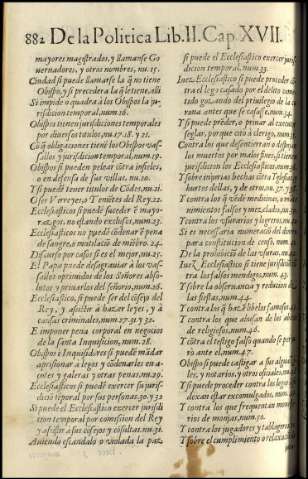 882 De la Politica Lib. II. Cap. XVII.
mayores magestrados, y llamanse Go
uernadores, y otros nombres, nu. 15.
Ciudad si puede llamarse la q̃ no tiene
Obispo, y si precedera la q̃ le tiene, alli
Si impide o quadra à los Obispos la ju-
risdicion temporal, num. 16.
Obispos tienen jurisdiciones temporales
por diuersos titulos, nu. 17. 18. y 21.
Co q̃ obligaciones tienẽ los Obispos vas-
sallos y jurisdicion temporal, num. 19.
Obispos si pueden pelear cõtra infieles,
o en defensa de sus villas, nu. 20.
Y si puedẽ tener titulos de Cõdes, nu. 21.
O ser Virreyes, o Tenientes del Rey. 22.
Ecclesiastico si puede suceder ẽ mayo-
razgos, no estando excluso, num. 23.
Ecclesiasticos no puedẽ cõdenar ẽ pena
de sangre, o mutilaciõ de miẽbro. 24.
Discurso por casos si es el mejor, num. 25.
El Papa puede desagrauiar a los vas-
sallos oprimidos de los señores abso-
lutos y priuarlos del señorio, num. 26.
Ecclesiastico, si puede ser del cõsejo del
Rey, y assistir a hazer leyes, y à
causas criminales, num. 27. 31. y 32.
E imponer pena corporal en negocios
de la santa Inquisicion, num. 28.
Obispos o Inquisidores si puedẽ mãdar
aprisionar a legos y cõdenarles en a-
çotes y galeras y otras penas, nu. 29.
Ecclesiasticos si puedẽ exercer su juris-
diciõ tẽporal por sus personas, 30. y 32
Si puede el Ecclesiastico exercer jurisdi
cion temporal por comission del Rey
y assistir a sus cõsejos y cõsultas, nu. 31.
Auiendo escandalo o violada la paz
si puede el Ecclesiastico exercer juris-
dicion temporal, num. 33.
Juez Ecclesiastico si puede proceder cõ-
tra el lego casado por el delito come-
tido
Y si puede prẽder, o penar al
seglar, porque citò a clerigo, num.
Contra los que desentierran o despojan
los muertos por malos fines, tienen
jurisdicion los Ecclesiasticos, num.
Y sobre injurias hechas cõtra
huertos dellas, y de otros, num. 37.
Y contra los q̃ vedẽ medicinas, o man-
tenimientos falsos y mezclados, nu.
Y contra los vsureros y logreros, nu.
Si es necessaria numeracion del dinero
para constitucion de censo, num.
De la prohibicion de las vsuras, nu.
Juez Ecclesiastico si tiene jurisdicion cõ
tra los falsos mendigos, num. 43.
Y sobre la obseruancia y
las fiestas, num. 44.
Y contra los que abusan de los abitos
de religiosos, num. 46.
Y cõtra el testigo falso quando se perju-
rò ante el, num. 47.
Obispo si puede castigar a sus alguazi-
les, y notarios, y otros oficiales, nu.
Y si puede proceder contra los legos
dexan estar excomulgados, num.
Y contra los que frequentan monaste-
rios de monjas, num.
Y contra los jugadores y tablageros
Y sobre el cumplimiento o relaxacion